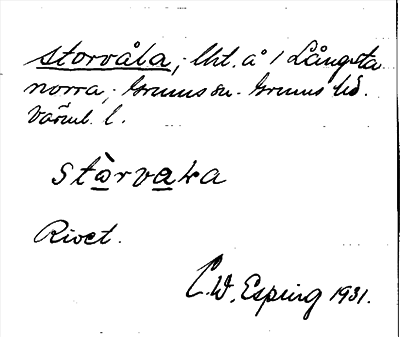 storvåla, lht. å 1 Långsta
norra, Grums sn. Grums hd.
Värml. l.
stòrvaka
Rivet.
C.W. Esping 1931.